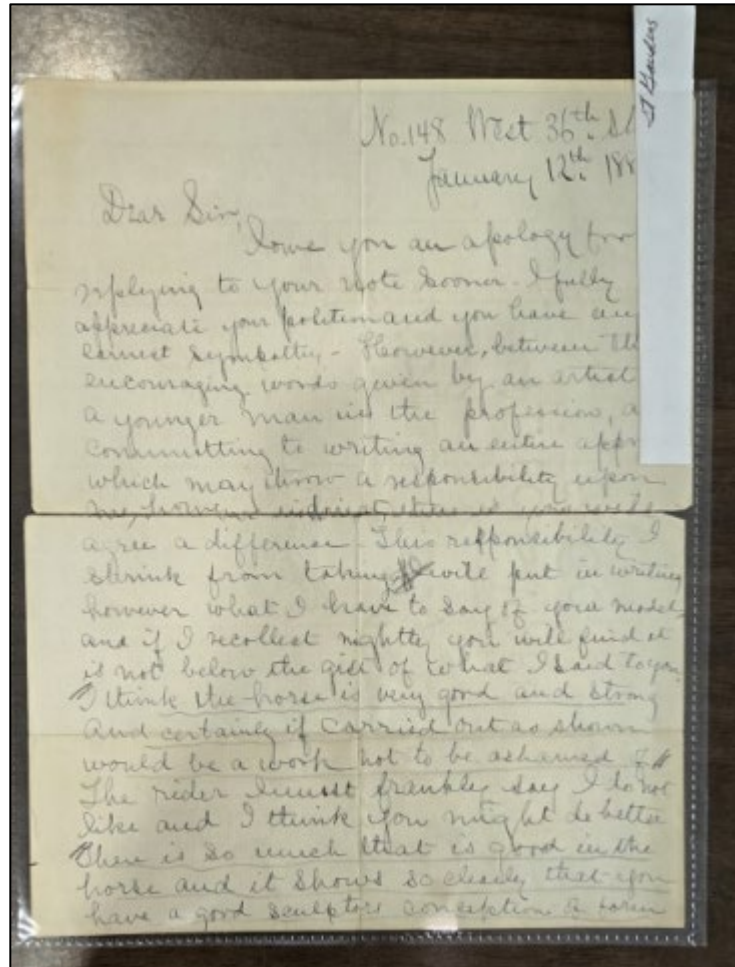 St Gaudens
No. 148 West 36th. St
January 12th. 188
Dear Sir,
I owe you an apology for
replying to your note sooner. I fully
appreciate your position and you have my
earnest sympathy - However, between the
encouraging words given by an artist
a younger man in the profession, a
committing to writing an entire appr
which may throw a responsibility upon
me, however indirect, there is you will
agree a difference This responsibility I
shrink from taking I will put in writing
however what I have to say of your model,
and if I recollect rightly you will find it
is not below the gist of what I said to you.
"I think the horse is very good and strong
and certainly if carried out as shown
would be a work not to be ashamed of"
The rider I must frankly say I do not
like and I think you might do better
"There is so much that is good in the
horse and it shows so clearly that you
have a good sculptors conception & form